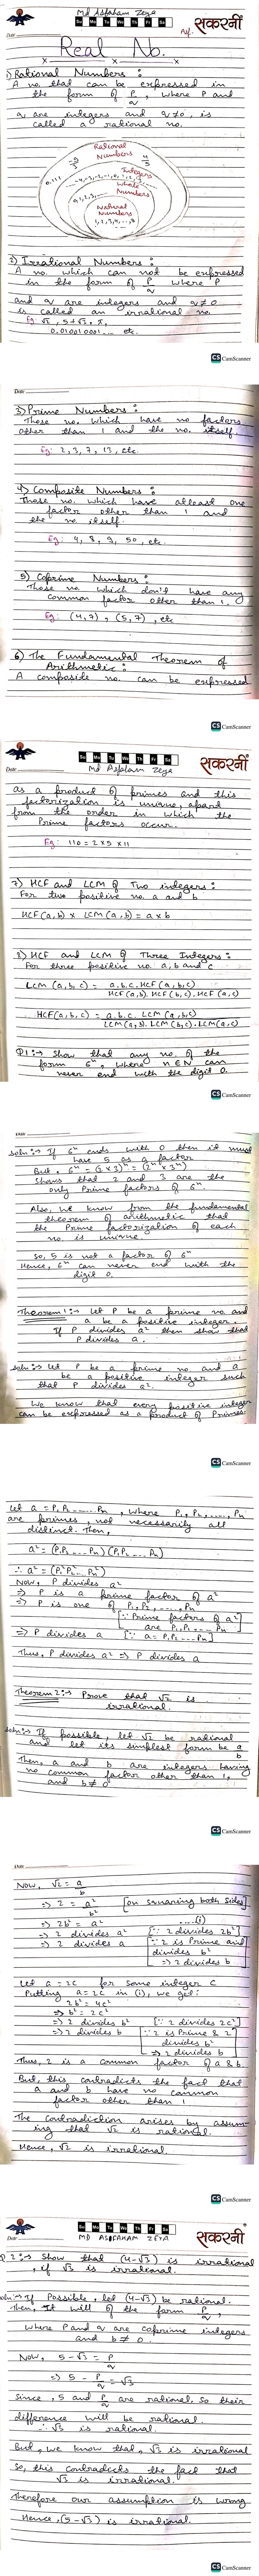 Md Asfaham Zeya
Su Mo Tu We Th Fr Sa
Date
सकरनी
Real No.
1) Rational Numbers :
A no. that can be expressed in
the form of P/q, where P and
q are integers and q≠0, is
called a rational no.
Rational
Numbers
Integers
-4,-3,-2,-1,0,1,2,3
Whole
Numbers
0,1,2,3
Natural
Numbers
1,2,3,4,...,8
2) Irrational Numbers :
A no. which can not be expressed
in the form of P/q where P
and q are integers and q≠0
is called an irrational no.
Eg: √2, 5+√3, π,
0.010010001... etc.
CS CamScanner
Date
3) Prime Numbers :
Those no. which have no factors
other than 1 and the no. itself.
Eg: 2, 3, 7, 13, etc.
4) Composite Numbers :
Those no. which have atleast one
factor other than 1 and
the no. itself.
Eg: 4, 8, 9, 50, etc.
5) Coprime Numbers :
Those no. which don't have any
common factor other than 1.
Eg: (4,7), (5,7), etc
6) The Fundamental Theorem of
Arithmetic :
A composite no. can be expressed
CS CamScanner
Su Mo Tu We Th Fr Sa
सकरनी
Date
Md Asfaham Zeya
as a product of primes and this
factorization is unique, apart
from the order in which the
Prime factors occur.
Eg: 110 = 2×5×11
7) HCF and LCM of Two integers :
For two positive no. a and b
HCF(a,b) × LCM(a,b) = a×b
8) HCF and LCM of Three Integers :
For three positive no. a, b and c
LCM (a,b,c) = a.b.c. HCF(a,b,c) / HCF(a,b). HCF(b,c). HCF(a,c)
HCF(a,b,c) = a.b.c. LCM (a,b,c) / LCM(a,b). LCM(b,c). LCM(a,c)
Q1:→ Show that any no. of the
form 6ⁿ, where n∈N can
never end with the digit 0.
CS CamScanner
Date
Soln:→ If 6ⁿ ends with 0 then it must
have 5 as a factor
But, 6ⁿ = (2×3)ⁿ = (2ⁿ×3ⁿ)
Shows that 2 and 3 are the
only Prime factors of 6ⁿ
Also, we know from the fundamental
theorem of arithmetic that
the Prime factorization of each
no. is unique.
So, 5 is not a factor of 6ⁿ
Hence, 6ⁿ can never end with the
digit 0.
Theorem 1:→ Let P be a prime no. and
a be a positive integer.
If P divides a² then show that
P divides a.
Soln:→ Let P be a prime no. and a
be a positive integer such
that P divides a².
We know that every positive integer
can be expressed as a product of Primes.
CS CamScanner
Let a = P₁P₂.....Pn, where P₁, P₂,...., Pn
are primes, not necessarily all
distinct. Then,
a² = (P₁P₂....Pn) (P₁P₂....Pn)
∴ a² = (P₁²P₂²...Pn²)
Now, P divides a²
⇒ P is a prime factor of a²
⇒ P is one of P₁, P₂,....., Pn
[∵ Prime factors of a²
are P₁,P₂....Pn]
⇒ P divides a [∵ a = P₁P₂....Pn]
Thus, P divides a² ⇒ P divides a
Theorem 2:→ Prove that √2 is
irrational.
Soln:→ If possible, let √2 be rational
and let its simplest form be a/b
Then, a and b are integers having
no common factor other than 1,
and b≠0
CS CamScanner
Date
Now, √2 = a/b
⇒ 2 = a²/b² [on squaring both sides]
⇒ 2b² = a² ....(i)
⇒ 2 divides a² [∵ 2 divides 2b²]
⇒ 2 divides a [∵ 2 is Prime and
divides b²
⇒ 2 divides b]
Let a = 2c for some integer c
Putting a = 2c in (i), we get:
2b² = 4c²
⇒ b² = 2c²
⇒ 2 divides b² [∵ 2 divides 2c²]
⇒ 2 divides b [∵ 2 is Prime & 2
divides b²
⇒ 2 divides b]
Thus, 2 is a common factor of a & b.
But, this contradicts the fact that
a and b have no common
factor other than 1
The contradiction arises by assum-
ing that √2 is rational.
Hence, √2 is irrational.
CS CamScanner
Su Mo Tu We Th Fr Sa
सकरनी
Date
MD ASFAHAM ZEYA
Q 2:→ Show that (4-√3) is irrational
, if √3 is irrational.
Soln:→ If Possible, let (4-√3) be rational.
Then, It will of the form P/q,
where P and q are coprime integers
and b≠0.
Now, 5-√3 = P/q
⇒ 5 - P/q = √3
Since, 5 and P/q are rational. So their
difference will be rational.
∴ √3 is rational.
But, we know that, √3 is irrational
So, this contradicts the fact that
√3 is irrational.
Therefore our assumption is wrong
Hence, (5-√3) is irrational.
CS CamScanner